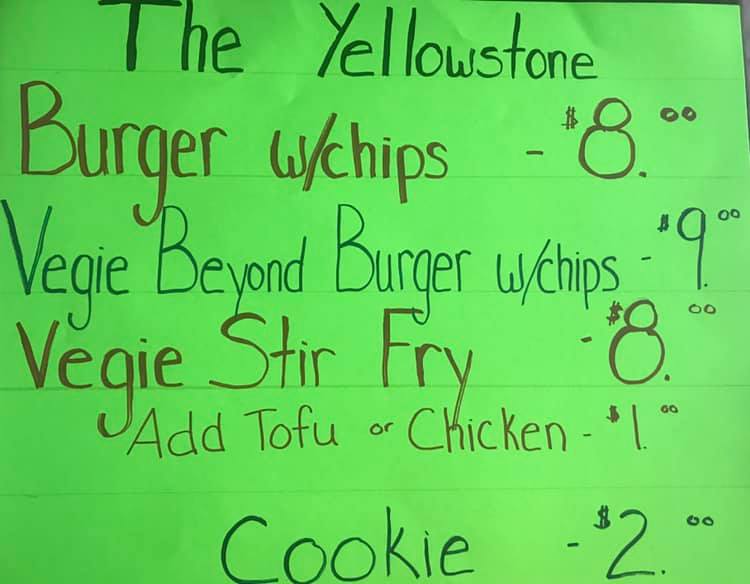 The Yellowstone
Burger w/chips - $8.00
Vegie Beyond Burger w/chips - $9.00
Vegie Stir Fry - $8.00
Add Tofu or Chicken - $1.00
Cookie - $2.00